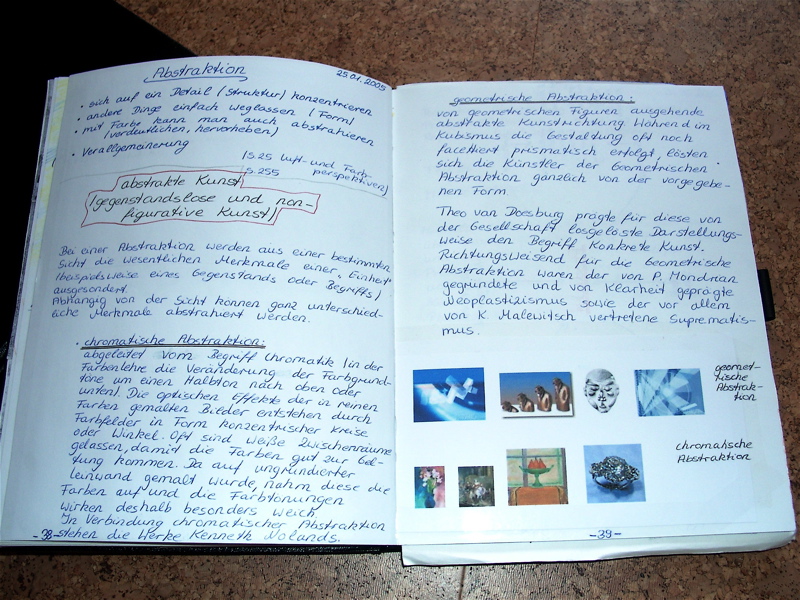 Abstraktion
25.01.2005
• sich auf ein Detail (Struktur) konzentrieren
• andere Dinge einfach weglassen (Form)
• mit Farbe kann man auch abstrahieren
(verdeutlichen, hervorheben)
• Verallgemeinerung
(S.25 Luft- und Farb-
perspektiven)
S.255
abstrakte Kunst
(gegenstandslose und non-
figurative Kunst)
Bei einer Abstraktion werden aus einer bestimmten
Sicht die wesentlichen Merkmale einer „Einheit"
(beispielsweise eines Gegenstands oder Begriffs)
ausgesondert.
Abhängig von der Sicht können ganz unterschied-
liche Merkmale abstrahiert werden.
• chromatische Abstraktion:
abgeleitet vom Begriff Chromatik (in der
Farbenlehre die Veränderung der Farbgrund-
töne um einen Halbton nach oben oder
unten). Die optischen Effekte der in reinen
Farben gemalten Bilder entstehen durch
Farbfelder in Form konzentrischer Kreise
oder Winkel. Oft sind weiße Zwischenräume
gelassen, damit die Farben gut zur Gel-
tung kommen. Da auf ungrundierter
Leinwand gemalt wurde, nahm diese die
Farben auf und die Farbtonungen
wirken deshalb besonders weich.
In Verbindung chromatischer Abstraktion
stehen die Werke Kenneth Nolands.
-38-
geometrische Abstraktion:
von geometrischen Figuren ausgehende
abstrakte Kunstrichtung. Während im
Kubismus die Gestaltung oft noch
facettiert prismatisch erfolgt, lösten
sich die Künstler der Geometrischen
Abstraktion gänzlich von der vorgegebe-
nen Form.
Theo van Doesburg prägte für diese von
der Gesellschaft losgelöste Darstellungs-
weise den Begriff Konkrete Kunst.
Richtungsweisend für die Geometrische
Abstraktion waren der von P. Mondrian
gegründete und von Klarheit geprägte
Neoplastizismus sowie der vor allem
von K. Malewitsch vertretene Suprematis-
mus.
geomet-
rische
Abstrak-
tion
chromatische
Abstraktion
-39-